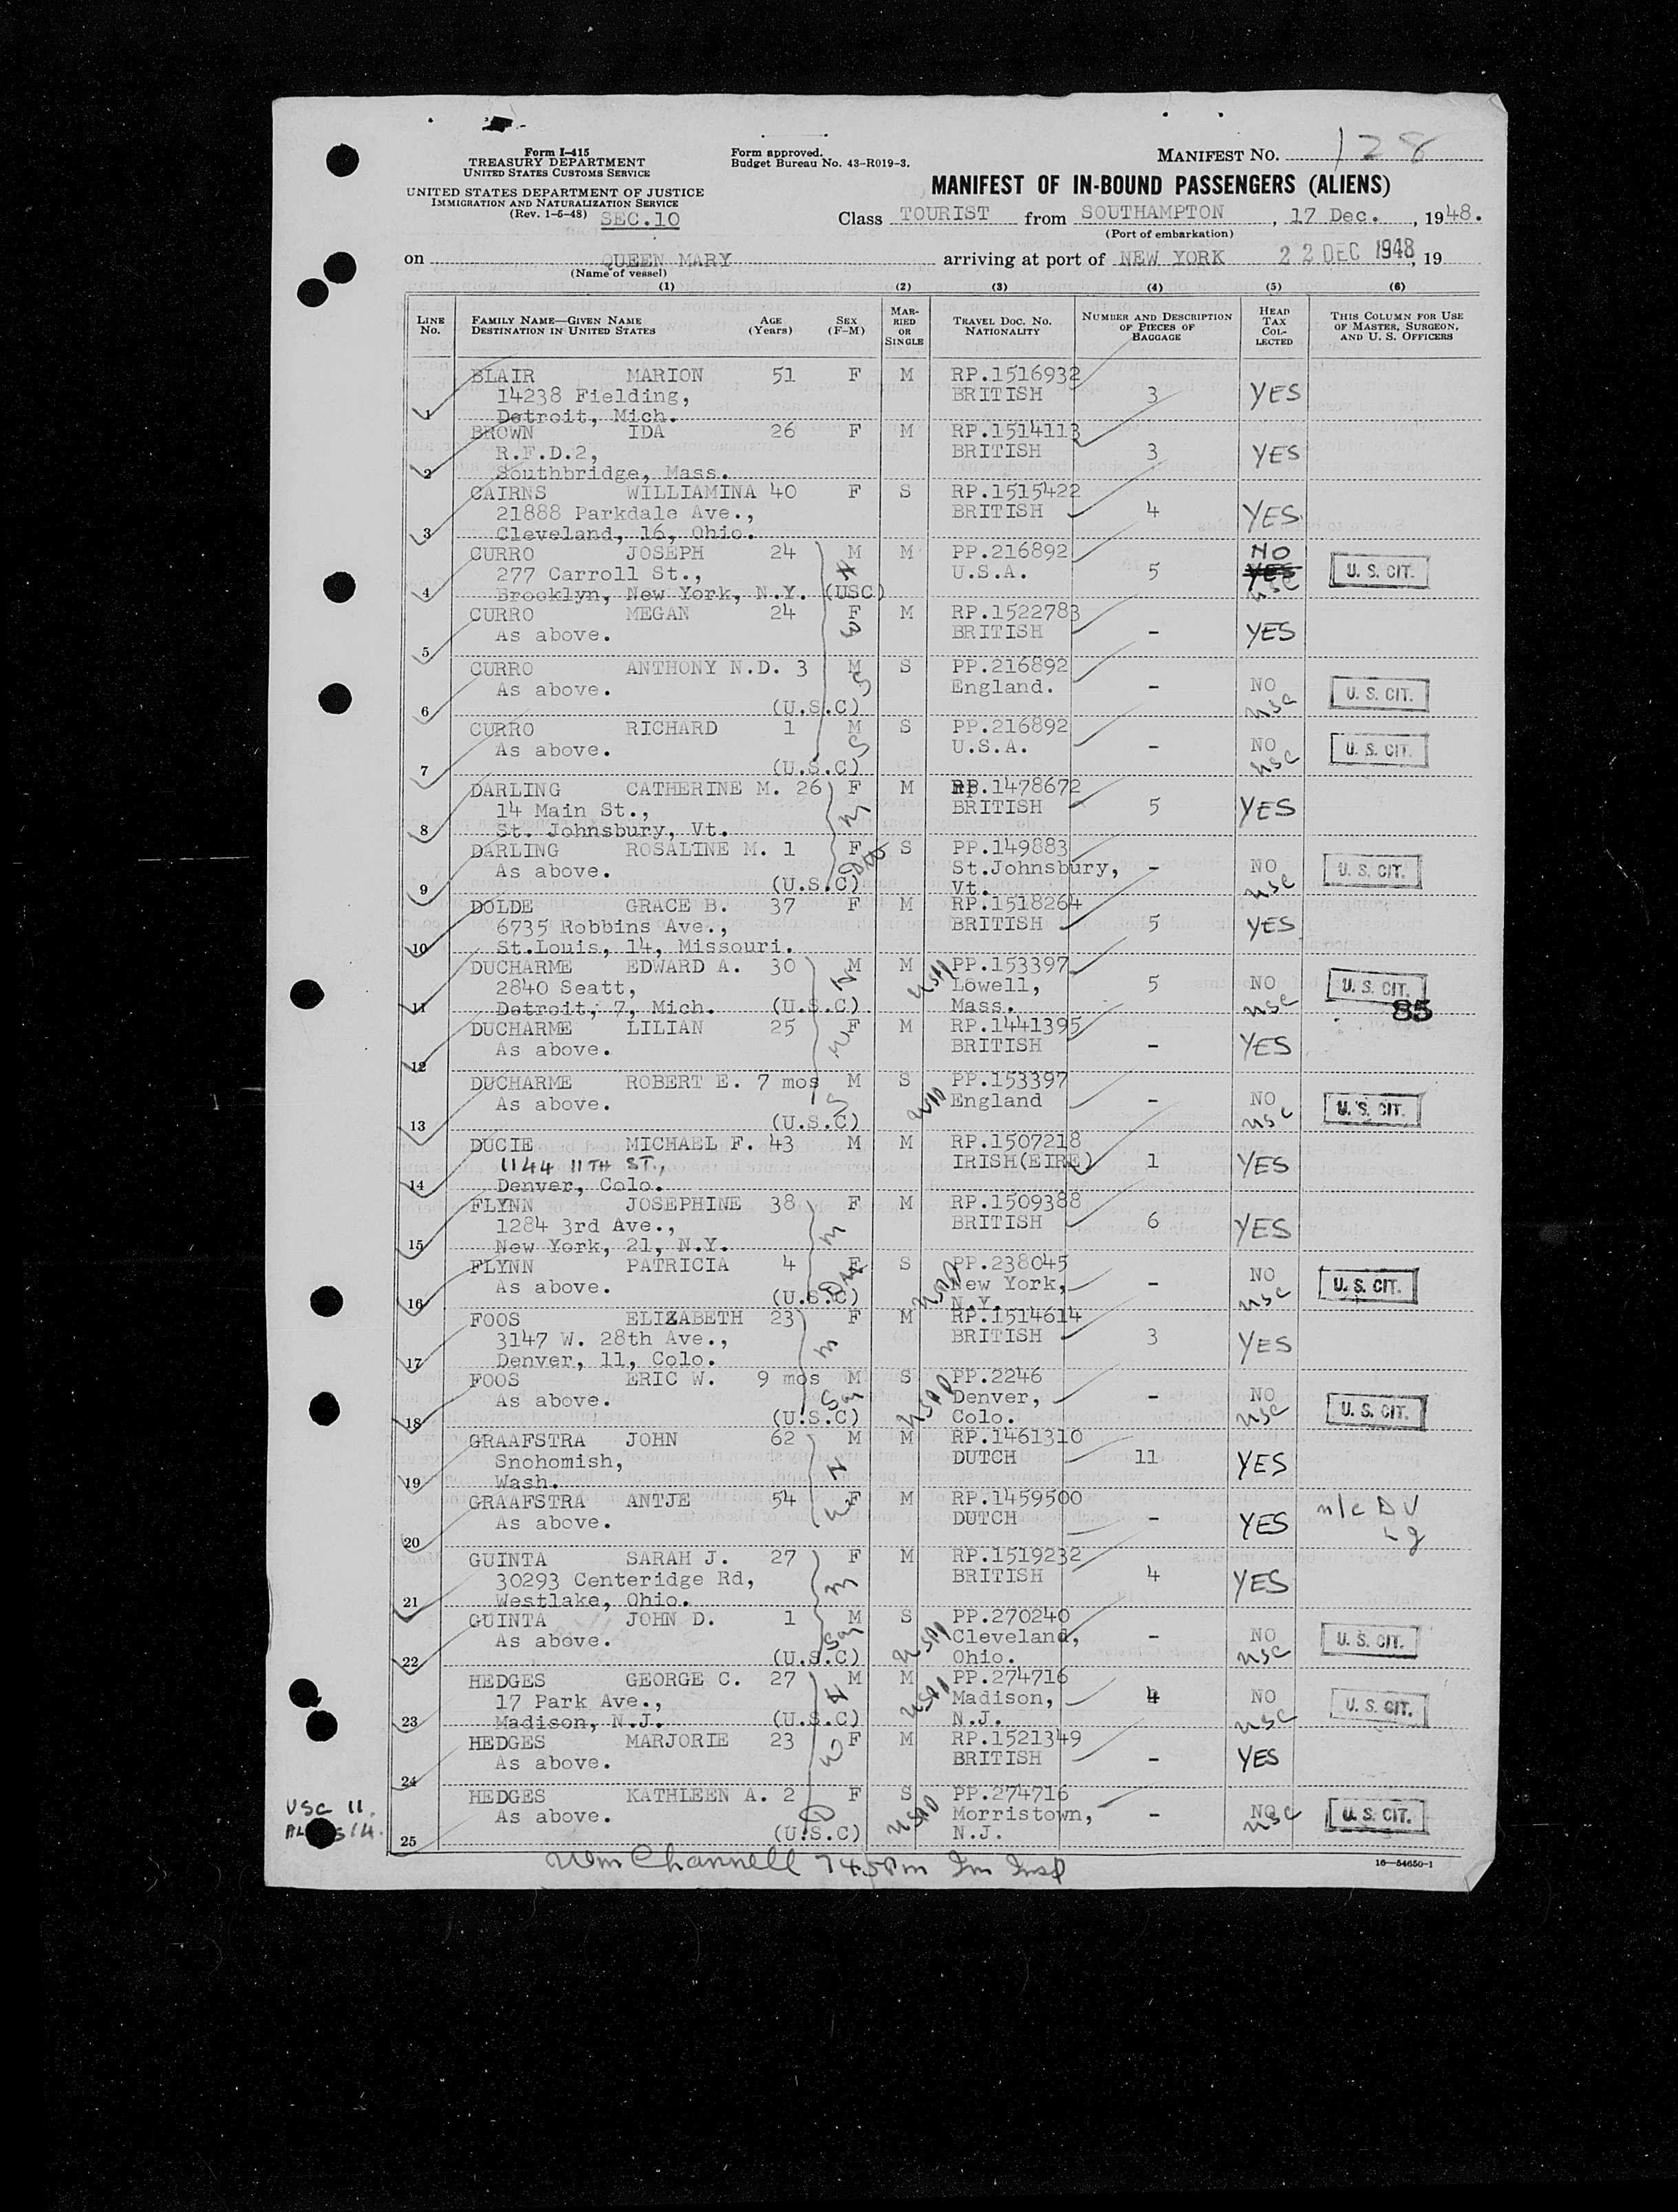 Form I-415
TREASURY DEPARTMENT
UNITED STATES CUSTOMS SERVICE
UNITED STATES DEPARTMENT OF JUSTICE
IMMIGRATION AND NATURALIZATION SERVICE
(Rev. 1-5-48) SEC.10
Form approved.
Budget Bureau No. 43-R019-3.
MANIFEST NO. 128
MANIFEST OF IN-BOUND PASSENGERS (ALIENS)
Class TOURIST from SOUTHAMPTON, 17 Dec., 1948.
(Port of embarkation)
on QUEEN MARY arriving at port of NEW YORK 22 DEC 1948, 19
(Name of vessel)
(1) (2) (3) (4) (5) (6)
LINE No. FAMILY NAME—GIVEN NAME DESTINATION IN UNITED STATES AGE (Years) SEX (F-M) MARRIED OR SINGLE TRAVEL DOC. NO. NATIONALITY NUMBER AND DESCRIPTION OF PIECES OF BAGGAGE HEAD TAX COLLECTED THIS COLUMN FOR USE OF MASTER, SURGEON, AND U. S. OFFICERS
BLAIR MARION 51 F M RP.1516932
14238 Fielding, BRITISH 3 YES
1 Detroit, Mich.
BROWN IDA 26 F M RP.1514113
R.F.D.2, BRITISH 3 YES
2 Southbridge, Mass.
CAIRNS WILLIAMINA 40 F S RP.1515422
21888 Parkdale Ave., BRITISH 4 YES
3 Cleveland, 16, Ohio.
CURRO JOSEPH 24 M M PP.216892 NO
277 Carroll St., U.S.A. 5 YES U. S. CIT.
4 Brooklyn, New York, N.Y. (USC) usc
CURRO MEGAN 24 F M RP.1522783
As above. BRITISH - YES
5
CURRO ANTHONY N.D. 3 M S PP.216892
As above. England. - NO U. S. CIT.
6 (U.S.C) usc
CURRO RICHARD 1 M S PP.216892
As above. U.S.A. - NO U. S. CIT.
7 (U.S.C) usc
DARLING CATHERINE M. 26 F M RP.1478672
14 Main St., BRITISH 5 YES
8 St. Johnsbury, Vt.
DARLING ROSALINE M. 1 F S PP.149883
As above. St.Johnsbury, - NO U. S. CIT.
9 (U.S.C) Vt. usc
DOLDE GRACE B. 37 F M RP.1518264
6735 Robbins Ave., BRITISH 5 YES
10 St.Louis, 14, Missouri.
DUCHARME EDWARD A. 30 M M PP.153397
2840 Seatt, Lowell, 5 NO U. S. CIT.
11 Detroit, 7, Mich. (U.S.C) Mass. usc 85
DUCHARME LILIAN 25 F M RP.1441395
As above. BRITISH - YES
12
DUCHARME ROBERT E. 7 mos M S PP.153397
As above. England - NO U. S. CIT.
13 (U.S.C) usc
DUCIE MICHAEL F. 43 M M RP.1507218
1144 11TH ST., IRISH(EIRE) 1 YES
14 Denver, Colo.
FLYNN JOSEPHINE 38 F M RP.1509388
1284 3rd Ave., BRITISH 6 YES
15 New York, 21, N.Y.
FLYNN PATRICIA 4 F S PP.238045
As above. New York, - NO U. S. CIT.
16 (U.S.C) N.Y. usc
FOOS ELIZABETH 23 F M RP.1514614
3147 W. 28th Ave., BRITISH 3 YES
17 Denver, 11, Colo.
FOOS ERIC W. 9 mos M S PP.2246
As above. Denver, - NO U. S. CIT.
18 (U.S.C) Colo. usc
GRAAFSTRA JOHN 62 M M RP.1461310
Snohomish, DUTCH 11 YES
19 Wash.
GRAAFSTRA ANTJE 54 F M RP.1459500
As above. DUTCH - YES
20
GUINTA SARAH J. 27 F M RP.1519232
30293 Centeridge Rd, BRITISH 4 YES
21 Westlake, Ohio.
GUINTA JOHN D. 1 M S PP.270240
As above. Cleveland, - NO U. S. CIT.
22 (U.S.C) Ohio. usc
HEDGES GEORGE C. 27 M M PP.274716
17 Park Ave., Madison, 4 NO U. S. CIT.
23 Madison, N.J. (U.S.C) N.J. usc
HEDGES MARJORIE 23 F M RP.1521349
As above. BRITISH - YES
24
HEDGES KATHLEEN A. 2 F S PP.274716
As above. Morristown, - NO usc U. S. CIT.
25 (U.S.C) N.J.
USC 11.
Wm Channell 745pm Im Insp
16—54650-1